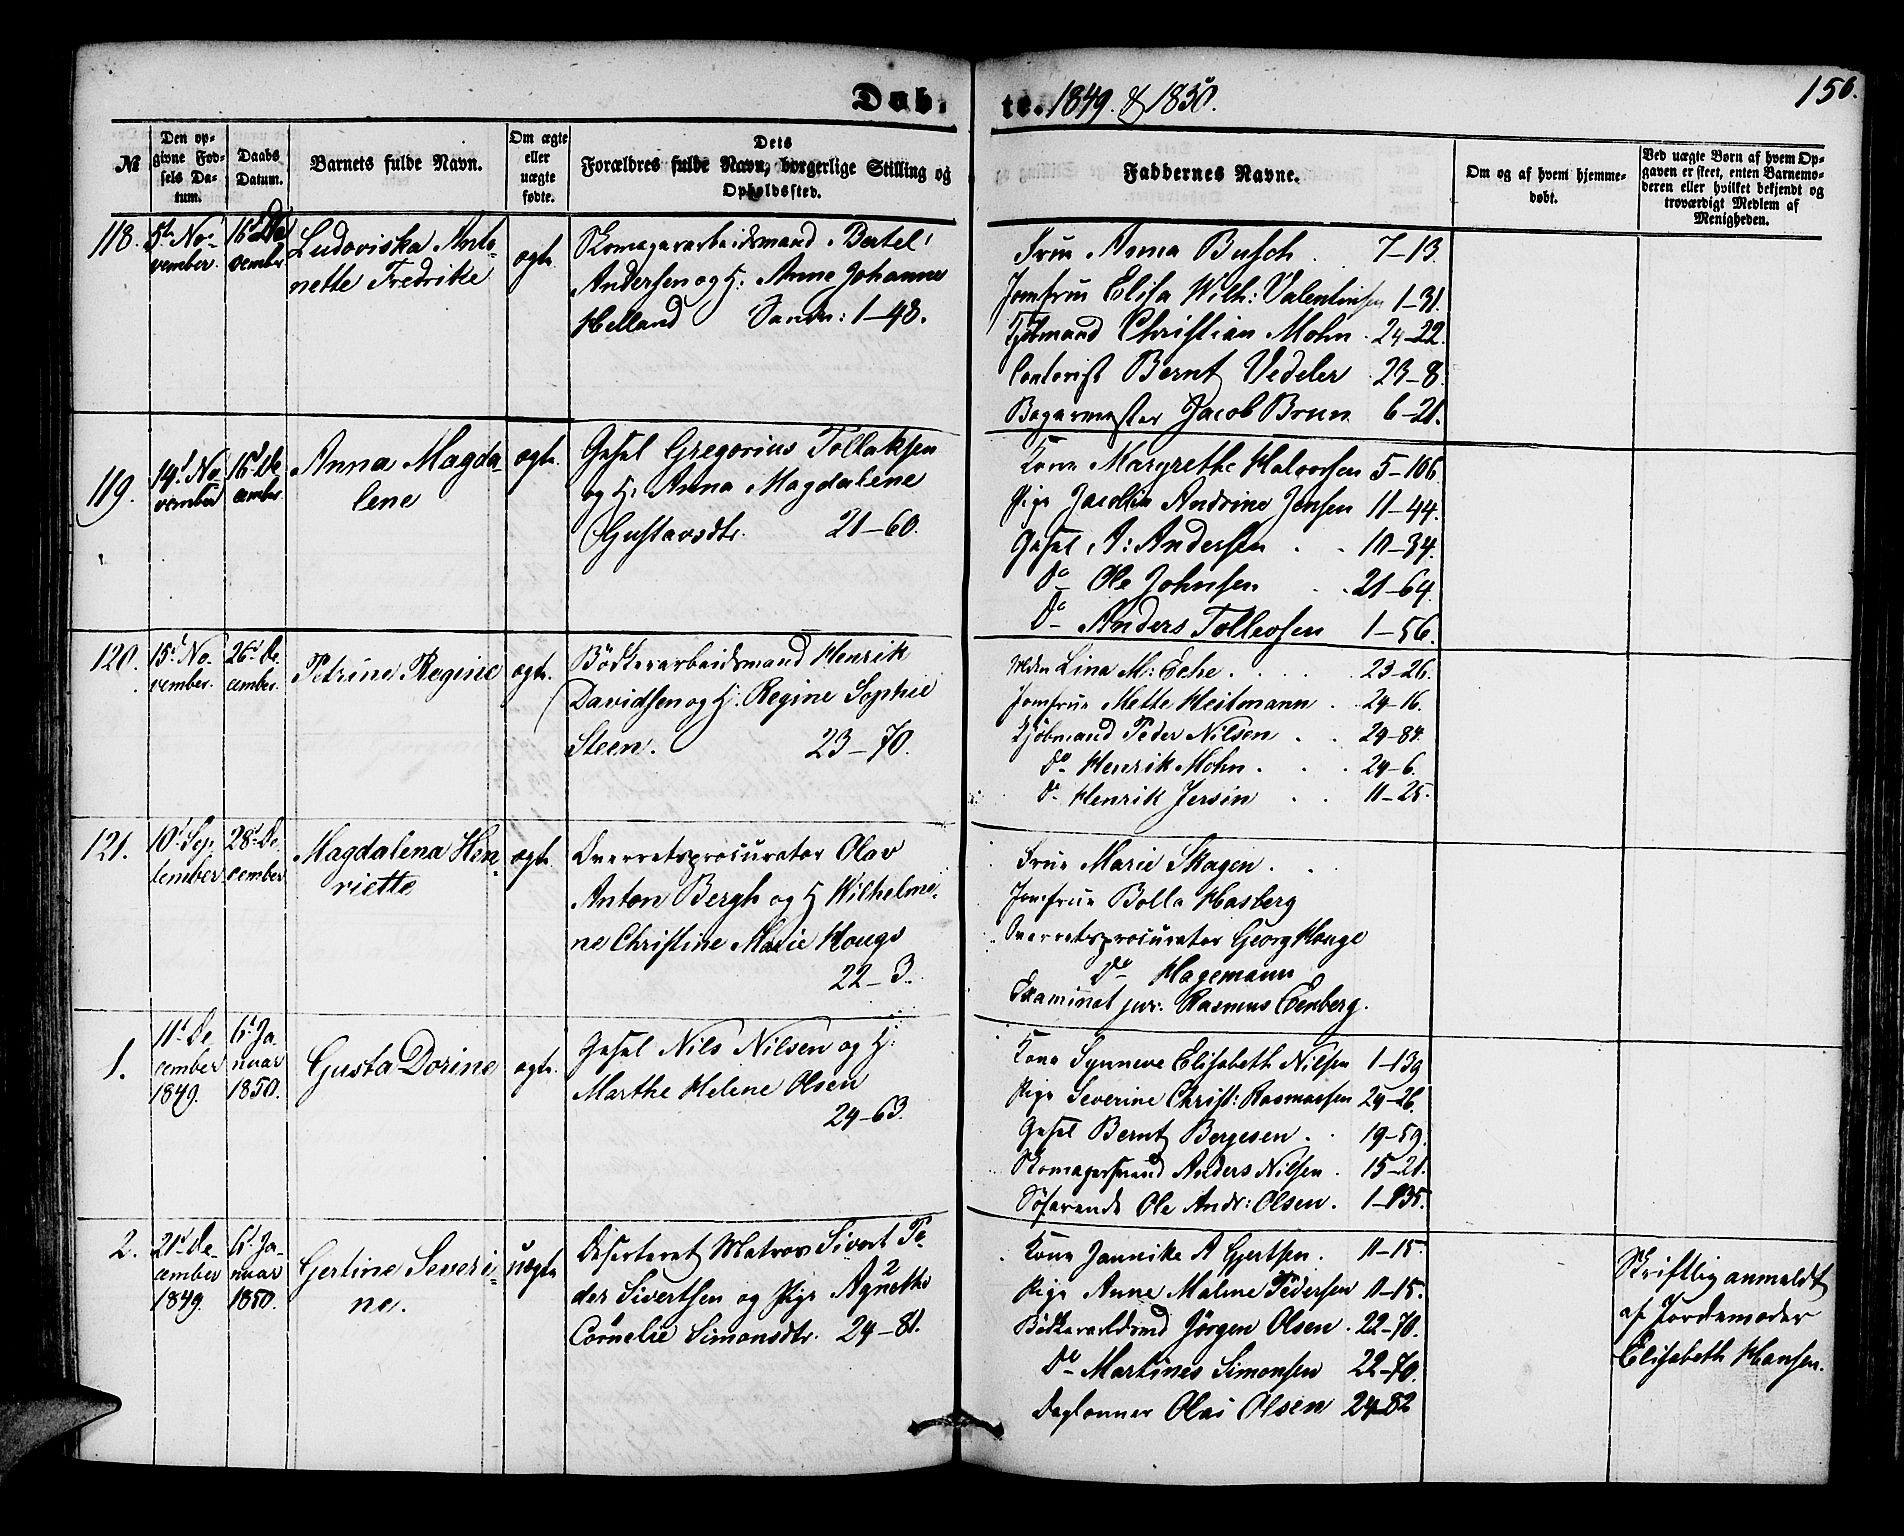 Døbte. 1849. & 1850.
156.
№
Den opgivne Fødsels Datum.
Daabs Datum.
Barnets fulde Navn.
Om ægte eller uægte fødte.
Dets Forældres fulde Navn, borgerlige Stilling og Opholdssted.
Faddernes Navne.
Om og af hvem hjemmedøbt.
Ved uægte Børn af hvem Opgaven er skeet, enten Barnemoderen eller hvilket bekjendt og troværdigt Medlem af Menigheden.
118. 5te November. 16d December Ludoviska Antonette Fredrikke ægte
Skomagerarbeidsmand Bertel
Andersen og H: Anne Johanne
Helland Sandv: 1-48.
Frue Anna Busch. 7-13.
Jomfrue Elisa Wilh: Valentinsen 1-31.
Kjøbmand Christian Mohn. 24-22.
Contorist Bernt Vedeler 23-8.
Bagermester Jacob Brun 6-21.
119. 14d November 16d December Anna Magdalene ægte.
Gesel Gregorius Tollaksen
og H. Anna Magdalene
Gustavsdtr. 21-60.
Kone Margrethe Halvorsen 5-106
Pige Andrine Jensen 11-44.
Gesel A: Andersen 10-34.
Do Ole Johnsen 21-64.
Do Anders Tollevsen 1-56.
120. 15d November. 26d December. Petrine Regine ægte.
Bødkerarbeidsmand Henrik
Davidsen og H: Regine Sophie
Steen. 23-70.
Lina M: 23-26.
Jomfrue Mette Heitmann 24-16.
Kjøbmand Peder Nilsen 24-84.
Do Henrik Mohn 24-6.
Do Henrik Jersin 11-25.
121. 10d September 28d December Magdalena Henriette ægte
Overretsprocurator Olav
Anton Bergh og H Wilhelmine
Christine Marie Hougs
22-3.
Frue Marie Skagen
Jomfrue Bolla Hasberg
Overretsprocurator Georg Houge
Do Hagemann
Examinat jur: Rasmus
1. 11d December 1849. 6d Januar 1850. Gusta Dorine ægte.
Gesel Nils Nilsen og H:
Marthe Helene Olsen
24-63.
Kone Synneve Elisabeth Nilsen 1-139
Pige Severine Christ: Rasmussen 24-26.
Gesel Bernt Bergesen 19-59.
Skomagersvend Anders Nilsen 15-21.
Søfarende Ole Andr: Olsen. 1-135.
2. 21d December 1849. 6d Januar 1850. Gertine Severine. uægte
Deserteret Matros Sivert Peder
Sivertsen og Pige Agnethe
Cornelie Simonsdtr. 24-81.
Kone Jannike A Gjertsen. 11-15.
Pige Anne Malene Pedersen 11-15.
Jørgen Olsen 22-70.
Do Martines Simonsen 22-70.
Daglønner Olai Olsen 24-82
Skriftlig anmeldt
af Jordemoder
Elisabeth Hansen.